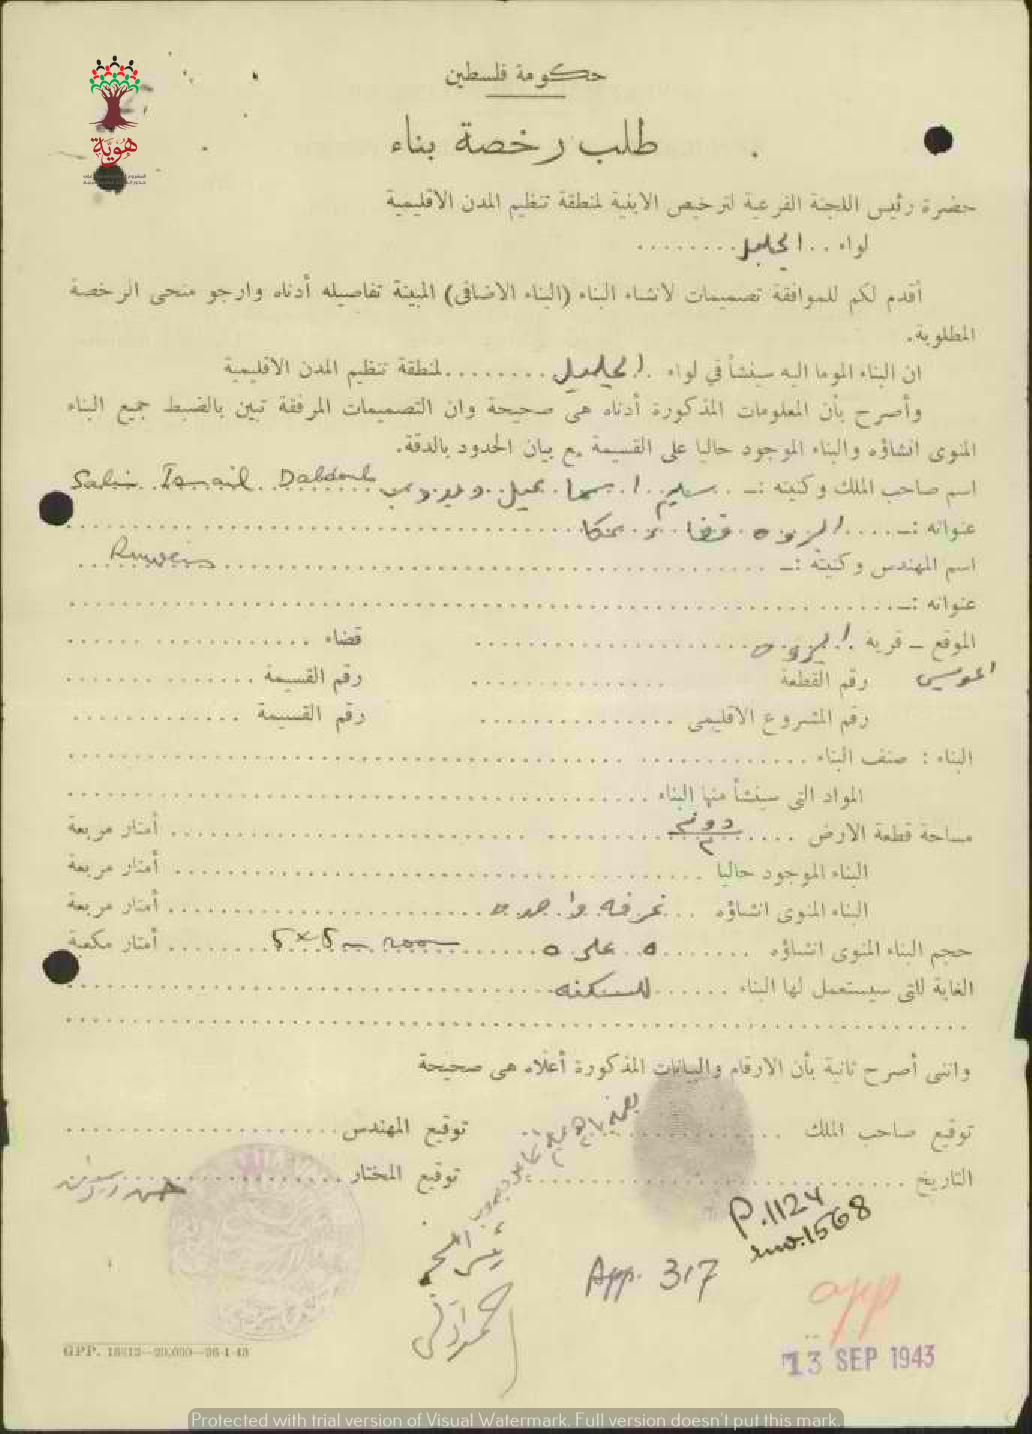 هوية
حكومة فلسطين
طلب رخصة بناء
حضرة رئيس اللجنة الفرعية لترخيص الابنية لمنطقة تنظيم المدن الاقليمية
لواء . . الجليل . . . . . . . .
أقدم لكم للموافقة تصميمات لانشاء البناء (البناء الاضافى) المبينة تفاصيله أدناه وارجو منحى الرخصة
المطلوبة.
ان البناء الموما اليه سينشأ في لواء . الجليل . . . . . . . . لمنطقة تنظيم المدن الاقليمية
وأصرح بأن المعلومات المذكورة أدناه هى صحيحة وان التصميمات المرفقة تبين بالضبط جميع البناء
المنوى انشاؤه والبناء الموجود حاليا على القسيمة مع بيان الحدود بالدقة.
اسم صاحب الملك وكنيته :ــ سليم اسماعيل Salim Ismail
عنوانه :ــ قضا عكا
اسم المهندس وكنيته :ــ Ruweis
عنوانه :ــ
الموقع ــ قرية قضاء
رقم القطعة رقم القسيمة
رقم المشروع الاقليمى رقم القسيمة
البناء : صنف البناء
المواد التى سينشأ منها البناء
مساحة قطعة الارض دونم أمتار مربعة
البناء الموجود حاليا أمتار مربعة
البناء المنوى انشاؤه غرفه واحده أمتار مربعة
حجم البناء المنوى انشاؤه ٥ على ٥ 5 × 5 أمتار مكعبة
الغاية للتى سيستعمل لها البناء للسكنه
واننى أصرح ثانية بأن الارقام والبيانات المذكورة أعلاه هى صحيحة
توقيع صاحب الملك توقيع المهندس
التاريخ توقيع المختار
P.1124
1568
App. 317
app
13 SEP 1943
GPP. 18812—20,000—26-1-43
Protected with trial version of Visual Watermark. Full version doesn't put this mark.